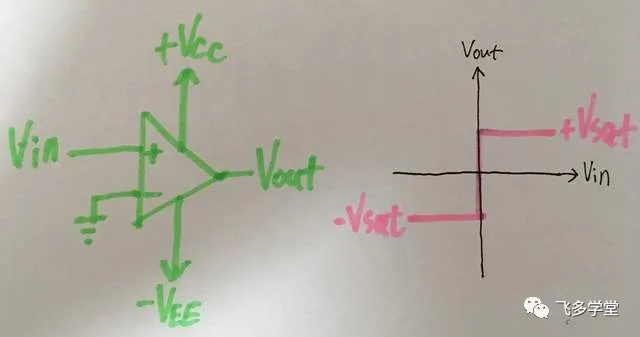 +Vcc
Vin
+
-
Vout
-VEE
Vout
+Vsat
Vin
-Vsat
飞多学堂